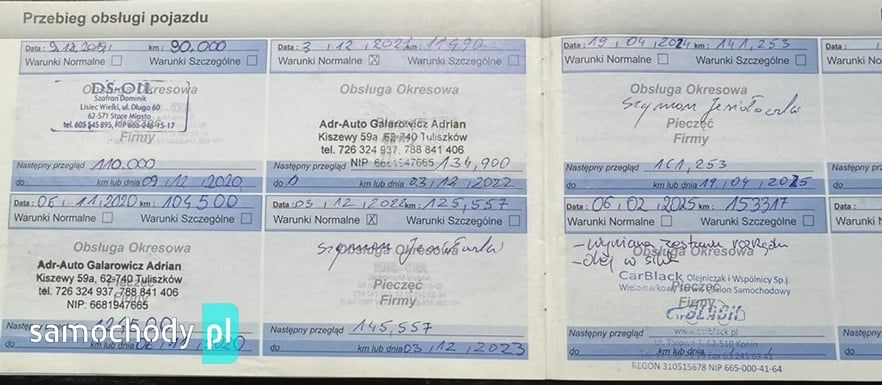 Przebieg obsługi pojazdu
Data: 9.12.2019 km: 90.000
Warunki Normalne Warunki Szczególne
Obsługa Okresowa
DS-OIL
Szafran Dominik
Lisiec Wielki, ul. Długa 60
62-571 Stare Miasto
tel. 605 545 895, NIP 665-246-15-17
Pieczęć
Firmy
Następny przegląd 110.000
do km lub dnia 09.12.2020
Data: 06.11.2020 km: 104500
Warunki Normalne Warunki Szczególne
Obsługa Okresowa
Adr-Auto Galarowicz Adrian
Kiszewy 59a, 62-740 Tuliszków
tel. 726 324 937, 788 841 406
NIP: 6681947665
Pieczęć
Firmy
Następny przegląd
do km lub dnia
samochody.pl
Data: 3.12.2021 km:
Warunki Normalne X Warunki Szczególne
Obsługa Okresowa
Adr-Auto Galarowicz Adrian
Kiszewy 59a, 62-740 Tuliszków
tel. 726 324 937, 788 841 406
NIP 6681947665
Następny przegląd 134,900
do km lub dnia 03.12.2022
Data: 03.12.2022 km: 125,557
Warunki Normalne X Warunki Szczególne
Obsługa Okresowa
Pieczęć
Firmy
Następny przegląd 145,557
do km lub dnia 03.12.2023
Data: 19.04.2024 km: 141,253
Warunki Normalne Warunki Szczególne
Obsługa Okresowa
Szymon
Pieczęć
Firmy
Następny przegląd 161,253
do km lub dnia 19.04.2025
Data: 06.02.2025 km: 153317
Warunki Normalne Warunki Szczególne
Obsługa Okresowa
- wymiana zestawu rozrządu
- olej w silnik
CarBlack Olejniczak i Wspólnicy Sp.j.
Wielomarkowy Salon Samochodowy
Pieczęć
Firmy
www.carblack.pl
Następny przegląd
do km lub dnia
REGON 310515678 NIP 665-000-41-64
Data:
Warunki
Następny
do
Data:
Warunki
Następny
do